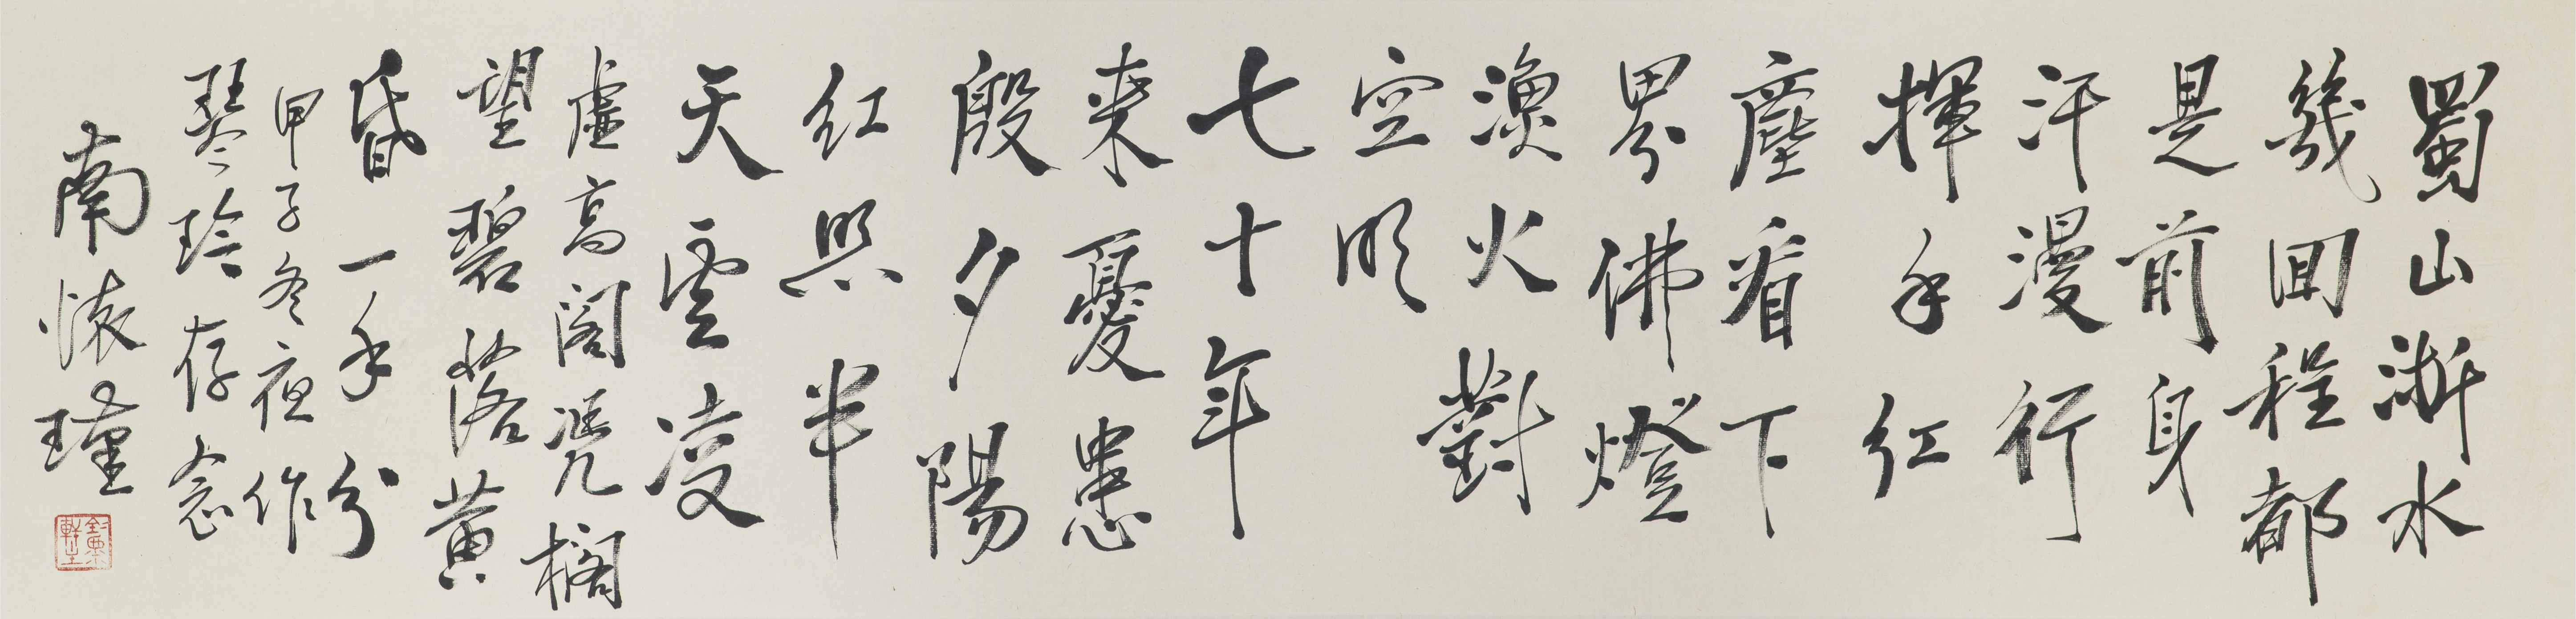 蜀山浙水
幾回程都
是前身
汗漫行
揮手紅
塵看下
界佛燈
漁火對
空明
七十年
来憂患
殷夕陽
紅照半
天雲凌
虛高閣凴欄
望碧落黄
昏一手分
甲子冬夜作
琴玲存念
南懷瑾